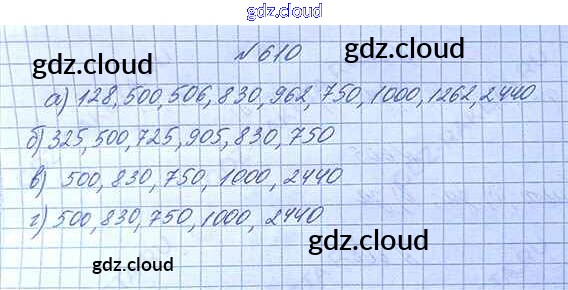 gdz.cloud
№ 610
gdz.cloud gdz.cloud
а) 128, 500, 506, 830, 962, 750, 1000, 1262, 2440
б) 325, 500, 725, 905, 830, 750
в) 500, 830, 750, 1000, 2440
г) 500, 830, 750, 1000, 2440
gdz.cloud
gdz.cloud